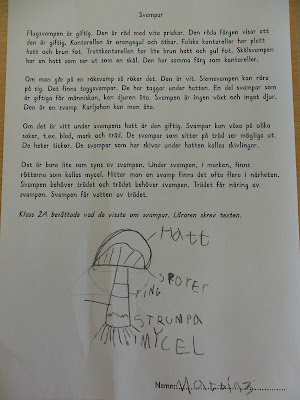 Svampar
Flugsvampen är giftig. Den är röd med vita prickar. Den röda färgen visar att
den är giftig. Kantarellen är orangegul och ätbar. Falska kantareller har platt
hatt och brun fot. Trattkantarellen har lite brun hatt och gul fot. Skålsvampen
har en hatt som ser ut som en skål. Den har samma färg som kantareller.
Om man går på en röksvamp så röker det. Den är vit. Slemsvampen kan röra
på sig. Det finns taggsvampar. De har taggar under hatten. En del svampar som
är giftiga för människan, kan djuren äta. Svampen är ingen växt och inget djur.
Den är en svamp. Karljohan kan man äta.
Om det är vitt under svampens hatt är den giftig. Svampar kan växa på olika
saker, t.ex. blad, mark och träd. De svampar som sitter på träd ser mögliga ut.
De heter tickor. De svampar som har skivor under hatten kallas skivlingar.
Det är bara lite som syns av svampen. Under svampen, i marken, finns
rötterna som kallas mycel. Hittar man en svamp finns det ofta flera i närheten.
Svampen behöver trädet och trädet behöver svampen. Trädet får näring av
svampen. Svampen får vatten av trädet.
Klass 2A berättade vad de visste om svampar. Läraren skrev texten.
HATT
SPORER
RING
STRUMPA
MYCEL
Namn: